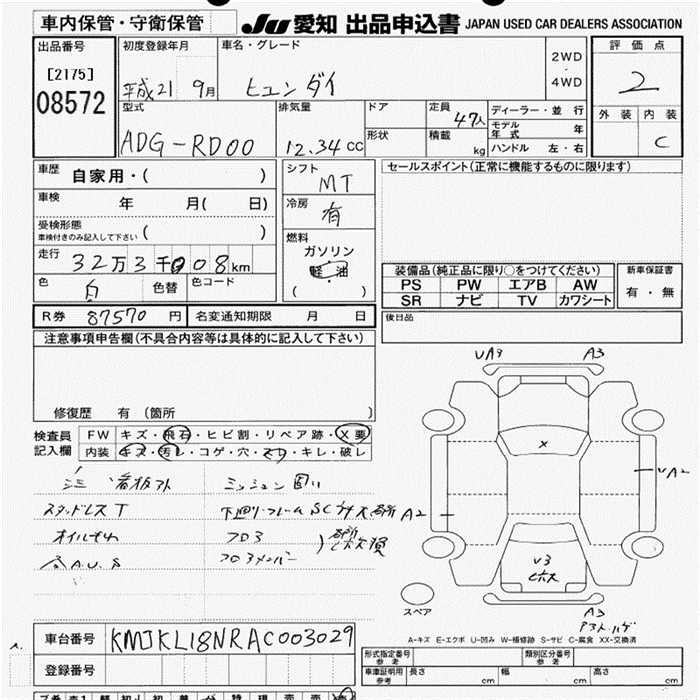 車内保管・守衛保管 JU 愛知 出品申込書 JAPAN USED CAR DEALERS ASSOCIATION
出品番号 初度登録年月 車名・グレード 2WD・4WD 評価点
[2175] 平成21 9月 ヒュンダイ 2
08572 型式 排気量 ドア 定員 47人 ディーラー・並 行 外装 内装
ADG-RD00 12.34cc 形状 積載 kg モデル年式 年 C
ハンドル 左・右
車歴 自家用・( ) シフト MT セールスポイント(正常に機能するものに限ります)
車検 年 月( 日) 冷房 有
受検形態 車検付きのみ記入して下さい ( ) 燃料
走行 32万3千008km ガソリン
軽・油 装備品(純正品に限り○をつけてください) 新車保証書
色 白 色替 色コード ( ・ ) PS PW エアB AW 有・無
SR ナビ TV カワシート
R券 87570円 名変通知期限 月 日 後日品
注意事項申告欄(不具合内容等は具体的に記入して下さい)
修復歴 有 (箇所 )
UA3 A3
検査員記入欄 FW キズ・飛石・ヒビ割・リペア跡・X要
内装 キズ・汚レ・コゲ・穴・スレ・キレ・破レ
X
看板外 ミッション
UA2
スタッドレスT 下廻り・フレームSC
A2
フロ3
A.U.S フロ3メンバー
V3
スペア
A3
A-キズ E-エクボ U-凹み W-補修跡 S-サビ C-腐食 XX-交換済
車台番号 KMJKL18NRAC003029
登録番号
形式指定番号 参考 類別区分番号 参考
車庫証明用 参考 長さ cm 幅 cm 高さ cm